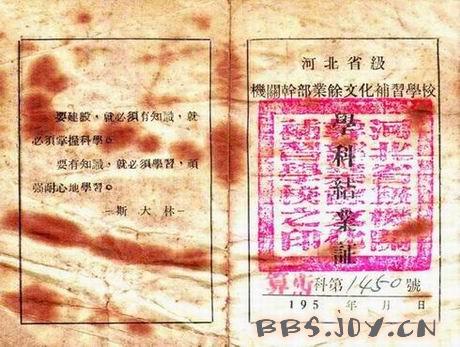 要建設，就必須有知識，就
必須掌握科學。
要有知識，就必須學習，頑
强耐心地學習。
—斯大林—
河北省級
機關幹部業餘文化補習學校
學科結業証
算術科第1450號
195 年 月 日
BBS.JOY.CN